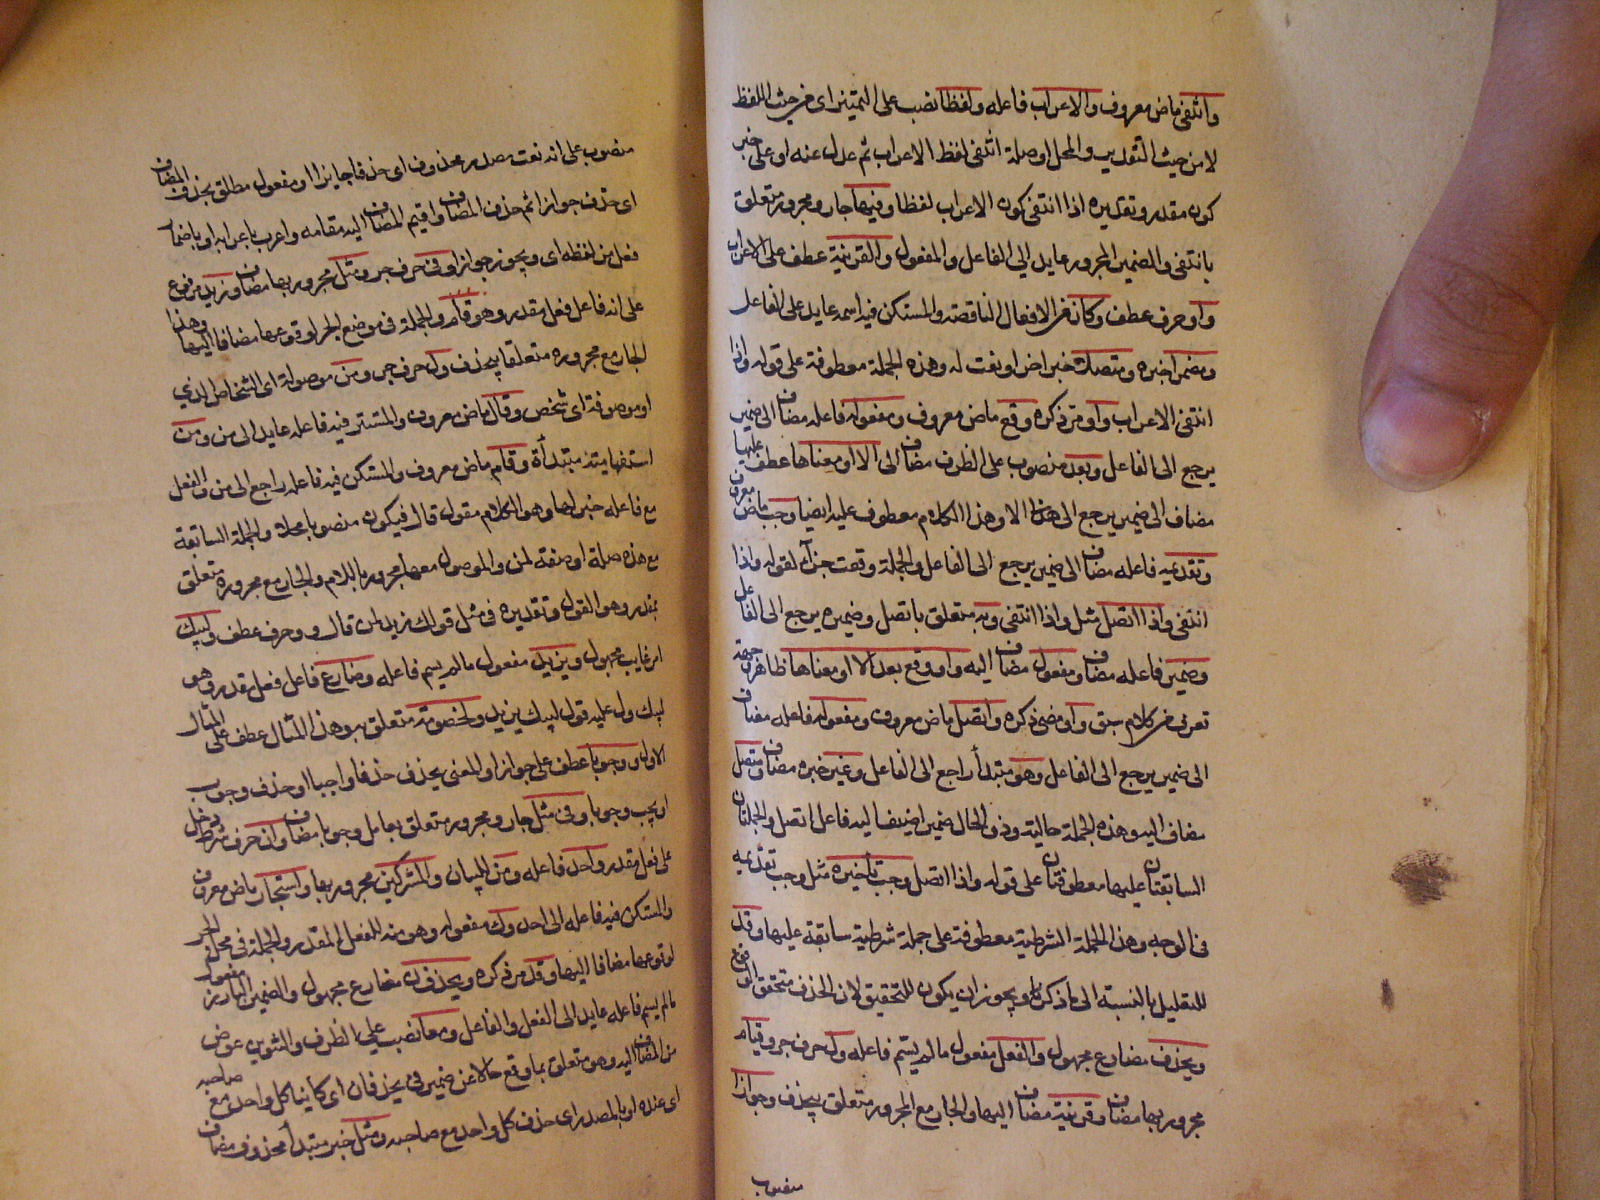 وانتفى ماض معروف والاعراب فاعله ولفظا نصب على التمييز اى من حيث اللفظ
لا من حيث التقدير والمحل او صلة انتفى لفظ الاعراب ثم عدل عنه او على خبر
كون مقدر وتقديره اذا انتفى كون الاعراب لفظا وفيهما جار ومجرور متعلق
بانتفى والضمير المجرور عايد الى الفاعل والمفعول والقرينة عطف على الاعراب
واو حرف عطف وكان من الافعال الناقصة والمستكن فيه اسمه عايد على الفاعل
ومضمرا خبره ومتصلا خبر اخر او نعت له وهذه الجملة معطوفة على قوله واذا
انتفى الاعراب واو مر ذكره وقع ماض معروف ومفعوله فاعله مضاف الى ضمير
يرجع الى الفاعل وبعد منصوب على الظرف مضاف الى الا او معناها عطف عليها
مضاف الى ضمير يرجع الى هذا الا وهذا الكلام معطوف عليه ايضا وجب ماض معروف
وتقديمه فاعله مضاف الى ضمير يرجع الى الفاعل والجملة وقعت جزاء لقوله واذا
انتفى واذا اتصل مثل واذا انتفى وبه متعلق باتصل وضميره يرجع الى الفاعل
وضمير فاعله مضاف ومفعول مضاف اليه واو وقع بعد الا او معناها ظاهره
تعرف من كلام سبق واو مضى ذكره واتصل ماض معروف ومفعوله فاعله مضاف
الى ضمير يرجع الى الفاعل وهو مبتدأ راجع الى الفاعل وغير خبره مضاف ومتصل
مضاف اليه وهذه الجملة حالية وذو الحال ضمير اضيف اليه فاعل اتصل والجملتان
السابقتان عليها معطوفتان على قوله واذا اتصل وجب تأخيره مثل وجب تقديمه
فى الوجه وهذا الجملة الشرطية معطوفة على جملة شرطية سابقة عليها وقد
للتقليل بالنسبة الى ما ذكر ويجوز ان يكون للتحقيق لان الحذف متحقق الوقوع
ويحذف مضارع مجهول والفعل مفعول مالم يسم فاعله ول حرف جر وقيام
مجرور بها مضاف وقرينة مضاف اليها والجار مع المجرور متعلق بيحذف وجوازا
منصوب
منصوب على انه نعت مصدر محذوف اى حذفا جايزا او مفعول مطلق بحذف المضاف
اى حذف جواز ثم حذف المضاف واقيم المضاف اليه مقامه واعرب باعرابه او باضمار
فعل من لفظه اى ويجوز جوازا وفى حرف جر ومثل مجرور بها مضاف وزيد مرفوع
على انه فاعل فعل مقدر وهو قام والجملة فى موضع الجر لوقوعها مضافا اليها وهذا
الجار مع مجروره متعلقا بيحذف ول حرف جر ومن موصولة اى الشخاص الذي
او موصوفة اى شخص وقال ماض معروف والمستتر فيه فاعله عايد الى من ومن
استفهامية مبتدأة وقام ماض معروف والمستكن فيه فاعله راجع الى من والفعل
مع فاعله خبر لها وهو الكلام مقول قال فيكون منصوبا محلا والجملة السابقة
مع هذه صلة او صفة لمن والموصول معها مجرور باللام والجار مع مجروره متعلق
بمقدر وهو القول وتقديره فى مثل قولك زيد لمن قال و وحرف عطف وليبك
امر غايب مجهول ويزيد مفعول مالم يسم فاعله وضارع فاعل فعل مقدر وهو
ليبك ول عليه قول ليبك يزيد ولخصومة متعلق به وهذا المثال عطف على المثال
الاول ووجوبا عطف على جوازا والمعنى يحذف حذفا واجبا او حذف وجوب
او يجب وجوبا وفى مثل جار ومجرور متعلق بعامل وجوبا مضاف وان حرف شرط دخل
على فعل مقدر واحد فاعله ومن للبيان والمشركين مجرور بها واستجار ماض معروف
والمستكن فيه فاعله الى احد وك مفعوله وهو مفسر للفعل المقدر والجملة فى محل الجر
لوقوعها مضافا اليها وقد مر ذكره ويحذفان مضارع مجهول والضمير البارز مفعول
مالم يسم فاعله عايد الى الفعل والفاعل ومعا نصب على الظرف والتنوين عوض
من المضاف اليه وهو متعلق بما وقع حالا عن ضمير فى يحذفان اى كاينا كل واحد مع صاحبه
اى عنده او بالمصدر اى حذف كل واحد مع صاحبه ومثل خبر مبتدأ محذوف مضاف